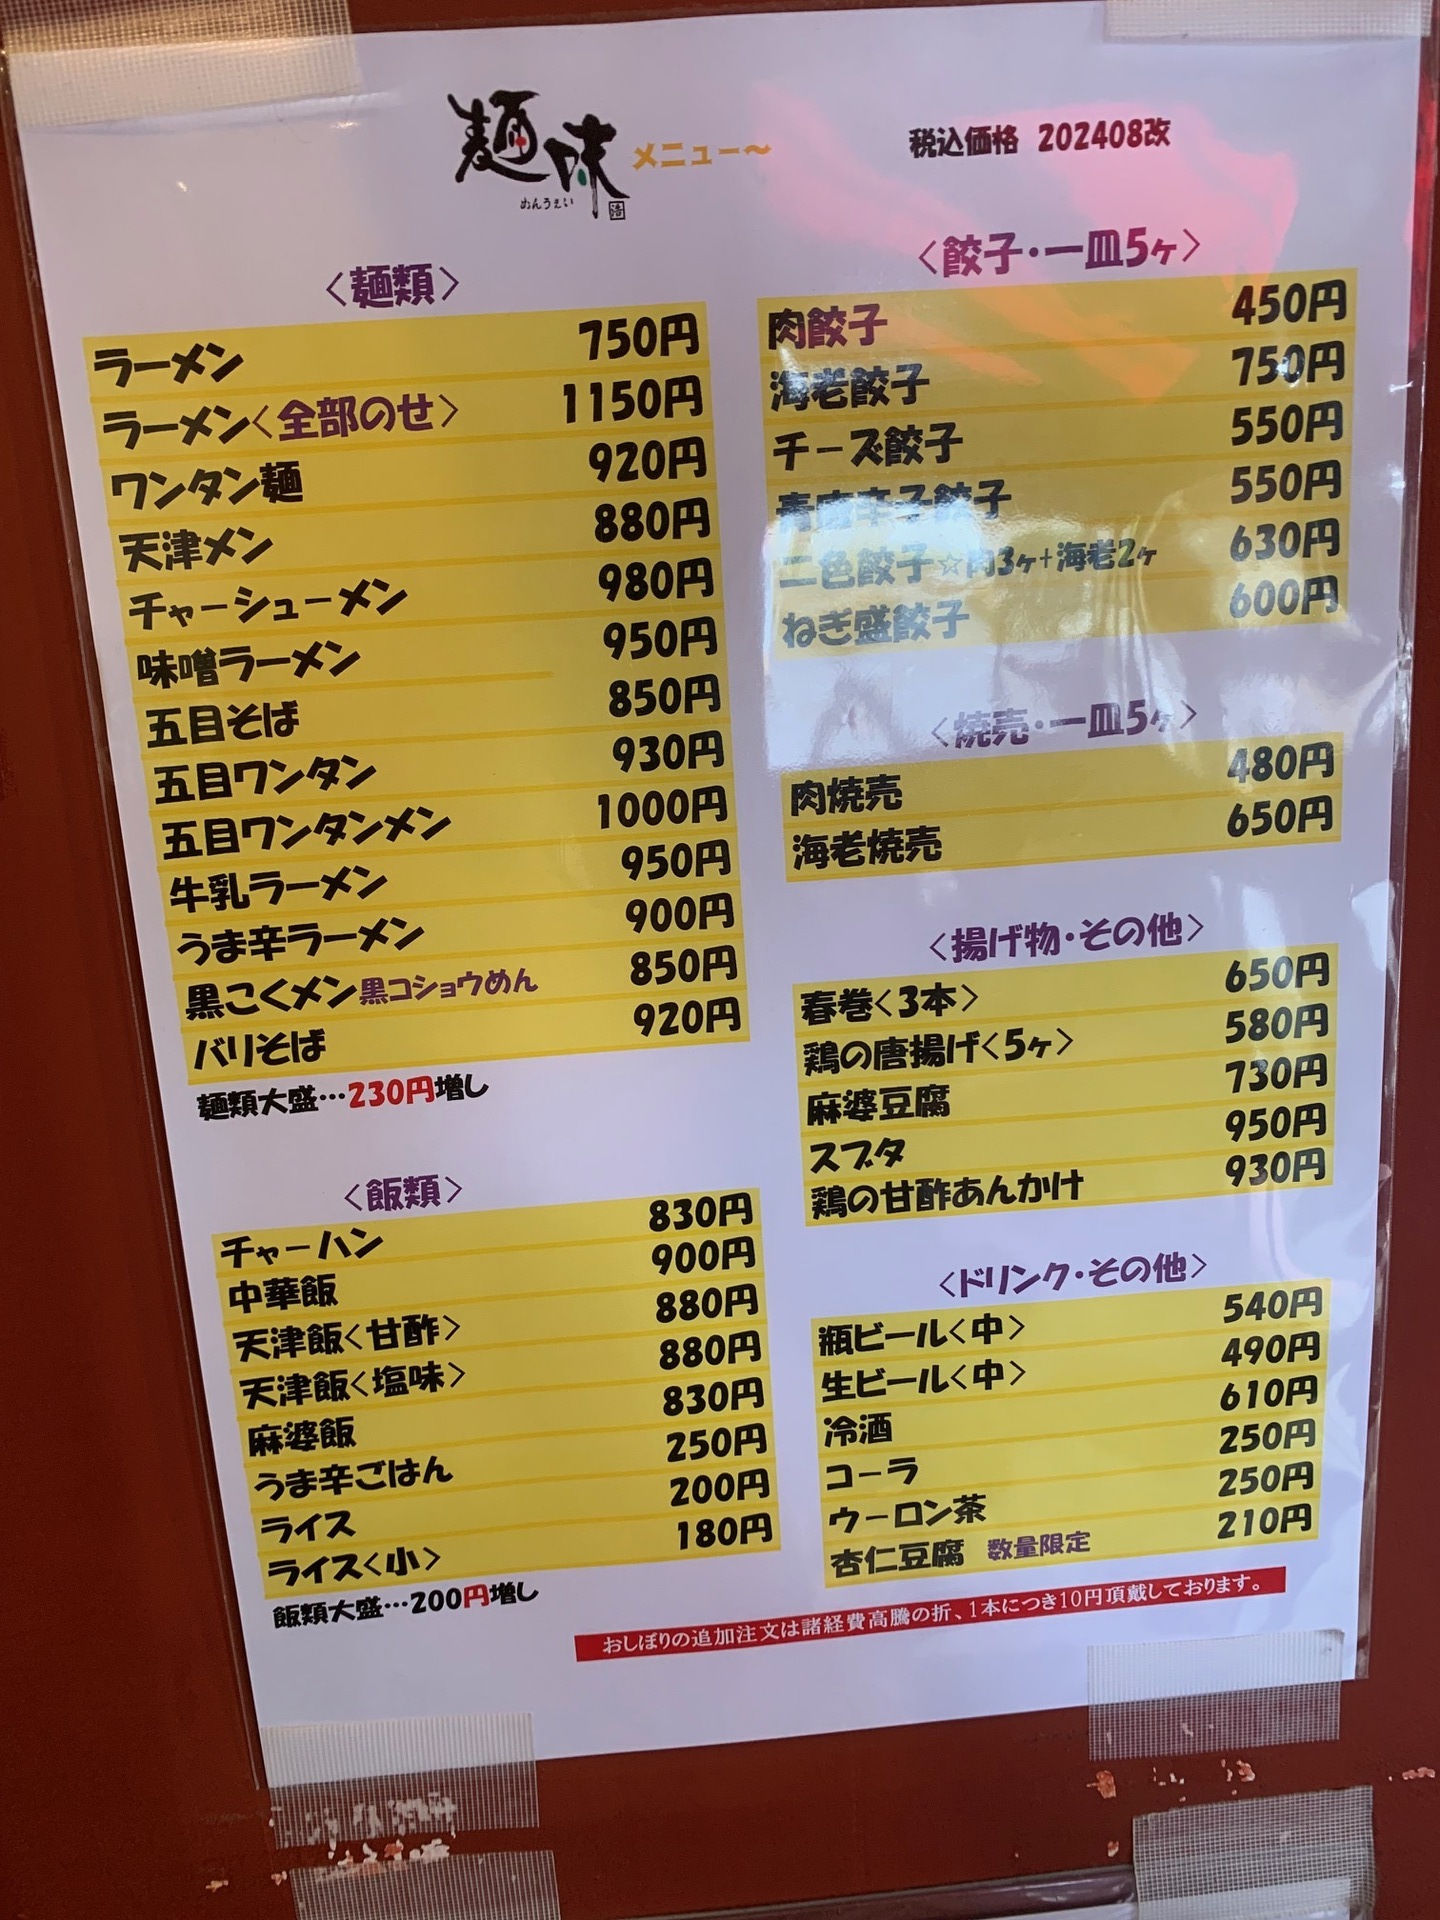 麺味
めんうぇい
メニュー～
税込価格 202408改
〈麺類〉
ラーメン 750円
ラーメン〈全部のせ〉 1150円
ワンタン麺 920円
天津メン 880円
チャーシューメン 980円
味噌ラーメン 950円
五目そば 850円
五目ワンタン 930円
五目ワンタンメン 1000円
牛乳ラーメン 950円
うま辛ラーメン 900円
黒こくメン 黒コショウめん 850円
バリそば 920円
麺類大盛…230円増し
〈飯類〉
チャーハン 830円
中華飯 900円
天津飯〈甘酢〉 880円
天津飯〈塩味〉 880円
麻婆飯 830円
うま辛ごはん 250円
ライス 200円
ライス〈小〉 180円
飯類大盛…200円増し
〈餃子・一皿5ヶ〉
肉餃子 450円
海老餃子 750円
チーズ餃子 550円
青唐辛子餃子 550円
二色餃子☆肉3ヶ+海老2ヶ 630円
ねぎ盛餃子 600円
〈焼売・一皿5ヶ〉
肉焼売 480円
海老焼売 650円
〈揚げ物・その他〉
春巻〈3本〉 650円
鶏の唐揚げ〈5ヶ〉 580円
麻婆豆腐 730円
スブタ 950円
鶏の甘酢あんかけ 930円
〈ドリンク・その他〉
瓶ビール〈中〉 540円
生ビール〈中〉 490円
冷酒 610円
コーラ 250円
ウーロン茶 250円
杏仁豆腐 数量限定 210円
おしぼりの追加注文は諸経費高騰の折、1本につき10円頂戴しております。